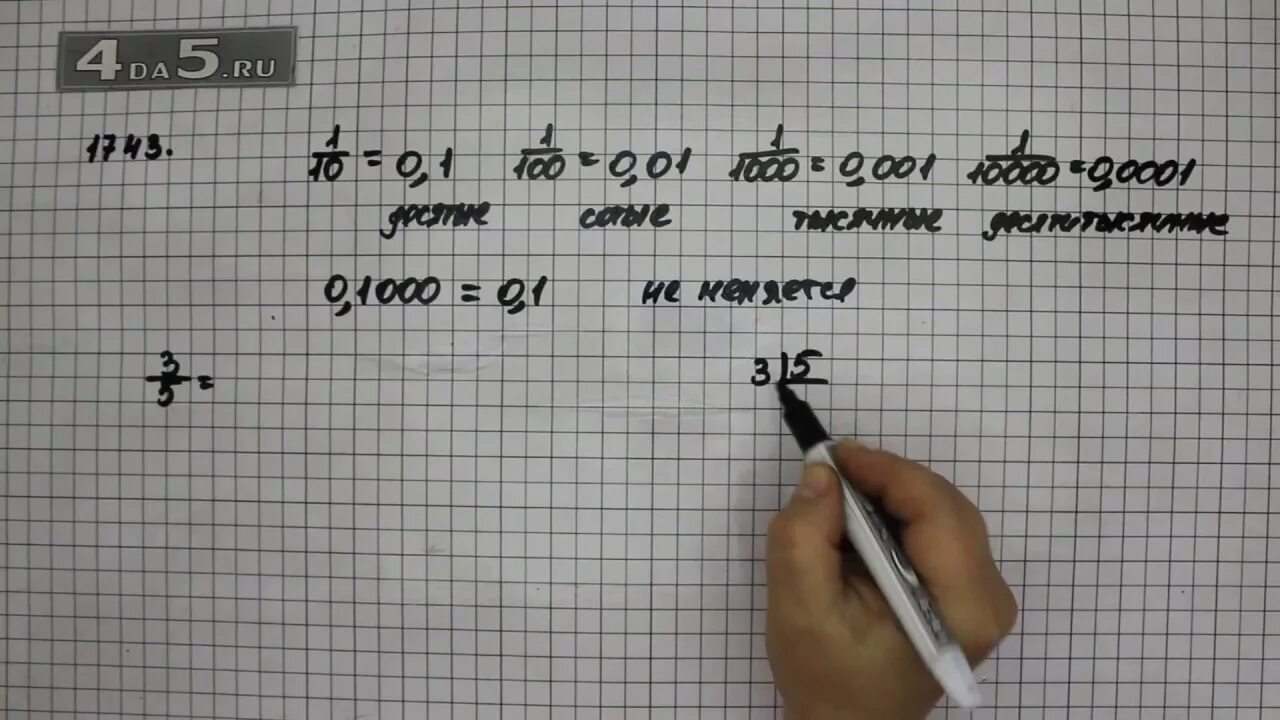 4DA5.RU
1743. 1/10 = 0,1 1/100 = 0,01 1/1000 = 0,001 1/10000 = 0,0001
десятые сотые тысячные десятитысячные
0,1000 = 0,1 не меняется
3/5 = 3 | 5